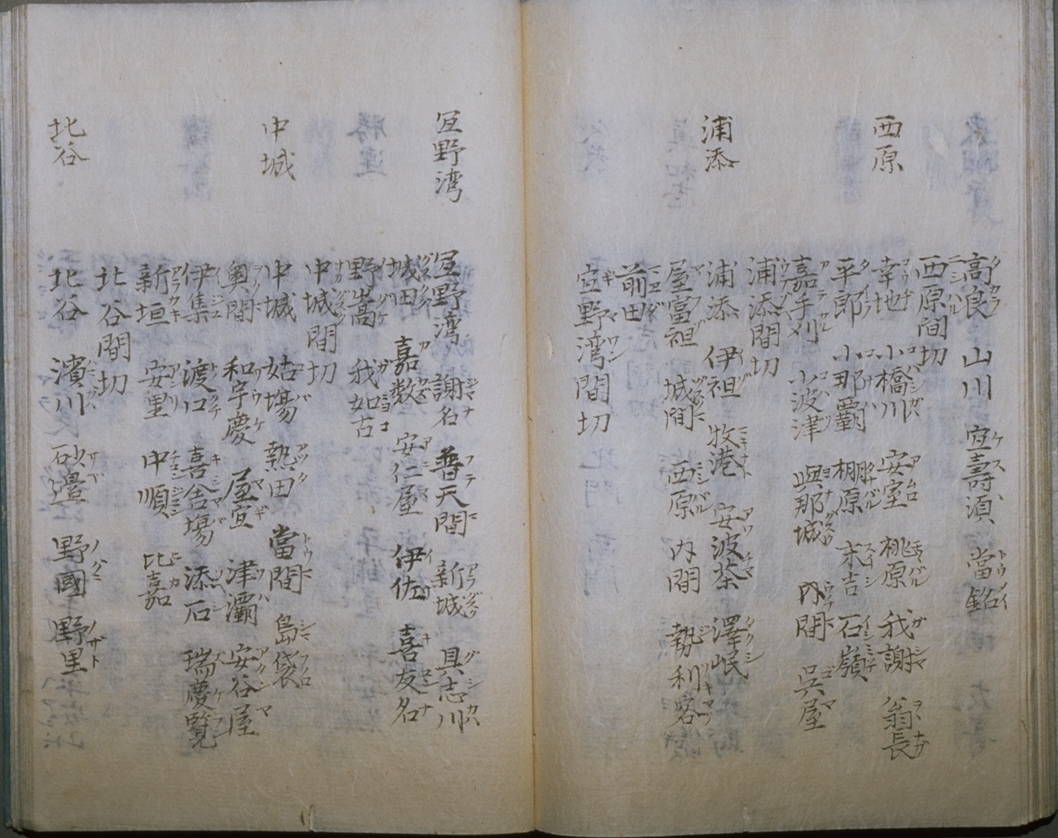 高良 山川 宜壽須 當銘
西原間切
西原 幸地 小橋川 安室 桃原 我謝 翁長
平郎 小那覇 棚原 末吉 石嶺
嘉手刈 小波津 與那城 内間 呉屋
浦添間切
浦添 浦添 伊祖 牧港 安波茶 澤岻
屋富祖 城間 西原 内間 勢利客
前田
宜野湾間切
宜野湾 宜野湾 謝名 普天間 新城 具志川
城田 嘉数 安仁屋 伊佐 喜友名
野嵩 我如古
中城間切
中城 中城 姑場 熱田 當間 島袋
奥間 和宇慶 屋宜 津灞 安谷屋
伊集 渡口 喜舎場 添石 瑞慶覧
新垣 安里 中順 比嘉
北谷間切
北谷 北谷 濱川 砂邉 野國 野里